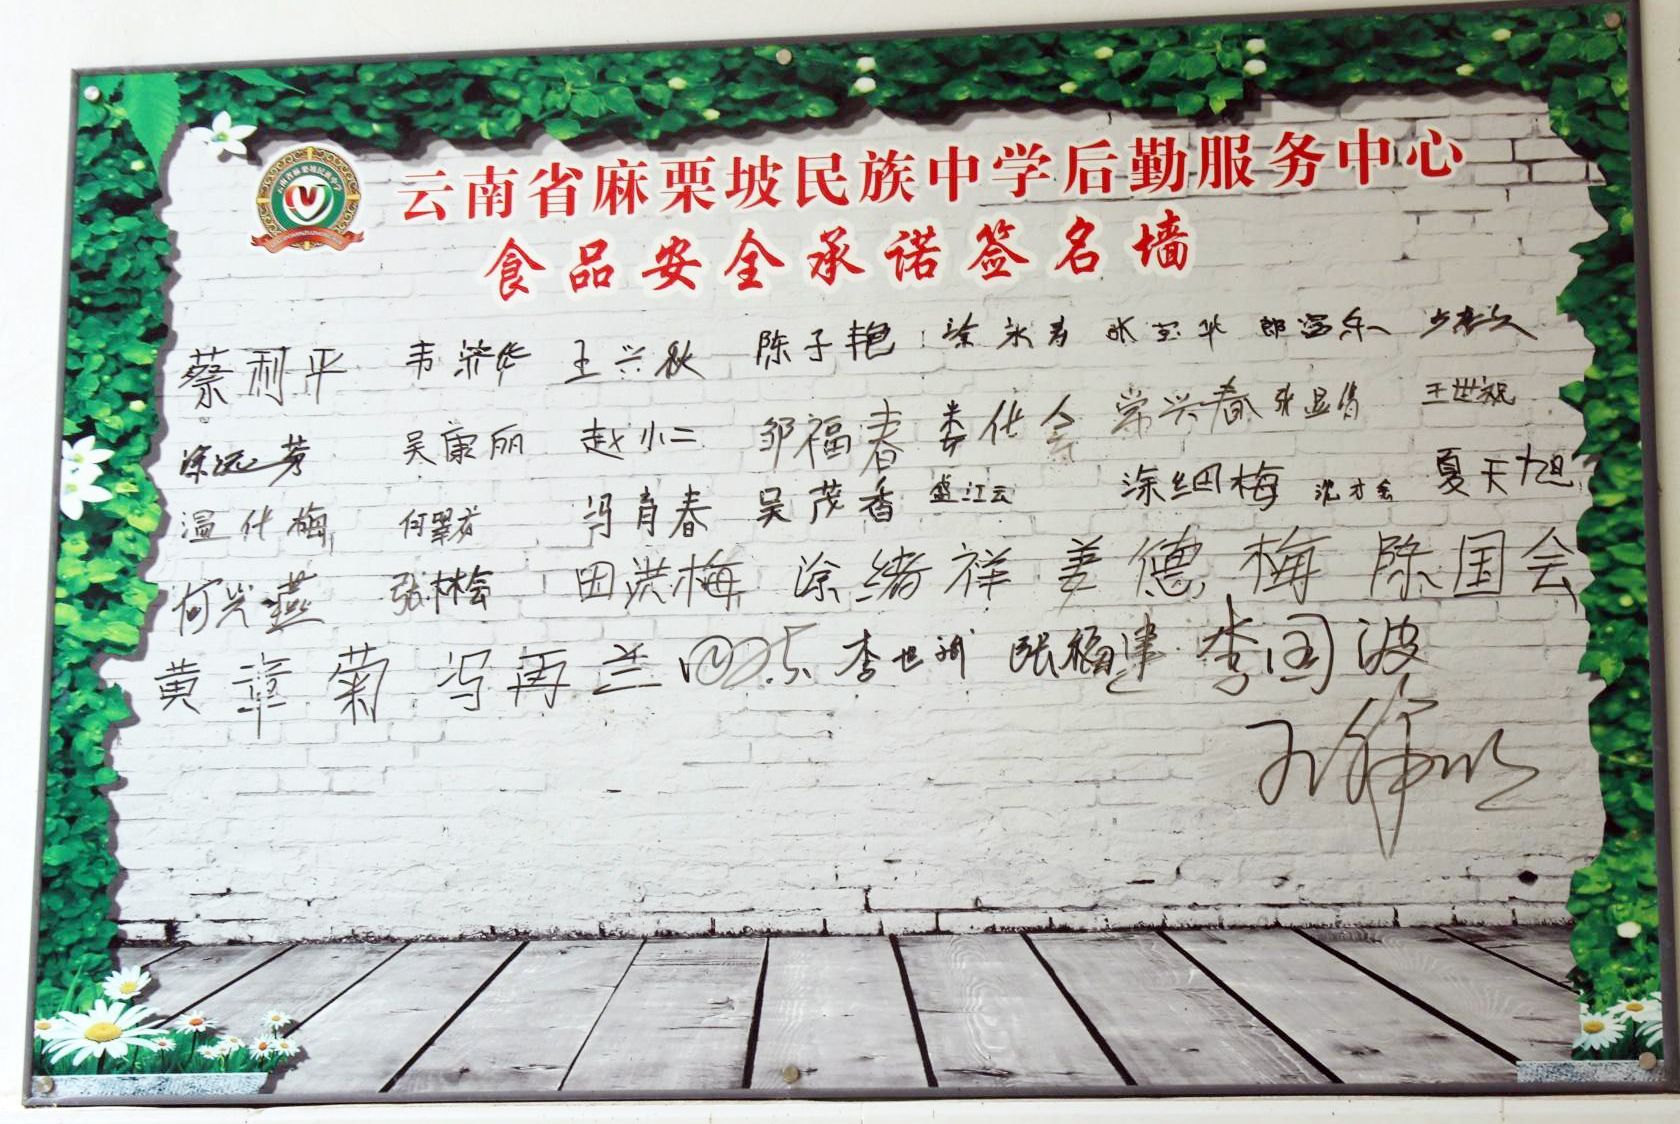 云南省麻栗坡民族中学后勤服务中心
食品安全承诺签名墙
蔡利平 韦济华 王兴秋 陈子艳 涂永寿
涂远芳 吴康丽 赵小二 邹福春 娄仕会 常兴春 张显俏 王世祝
温仕梅 何翠芬 冯育春 吴茂香 盛江云 涂细梅 沈才会 夏天旭
何兴燕 张林会 田洪梅 涂绪祥 姜德梅 陈国会
黄章菊 冯再兰 李世斌 张福建 李国波